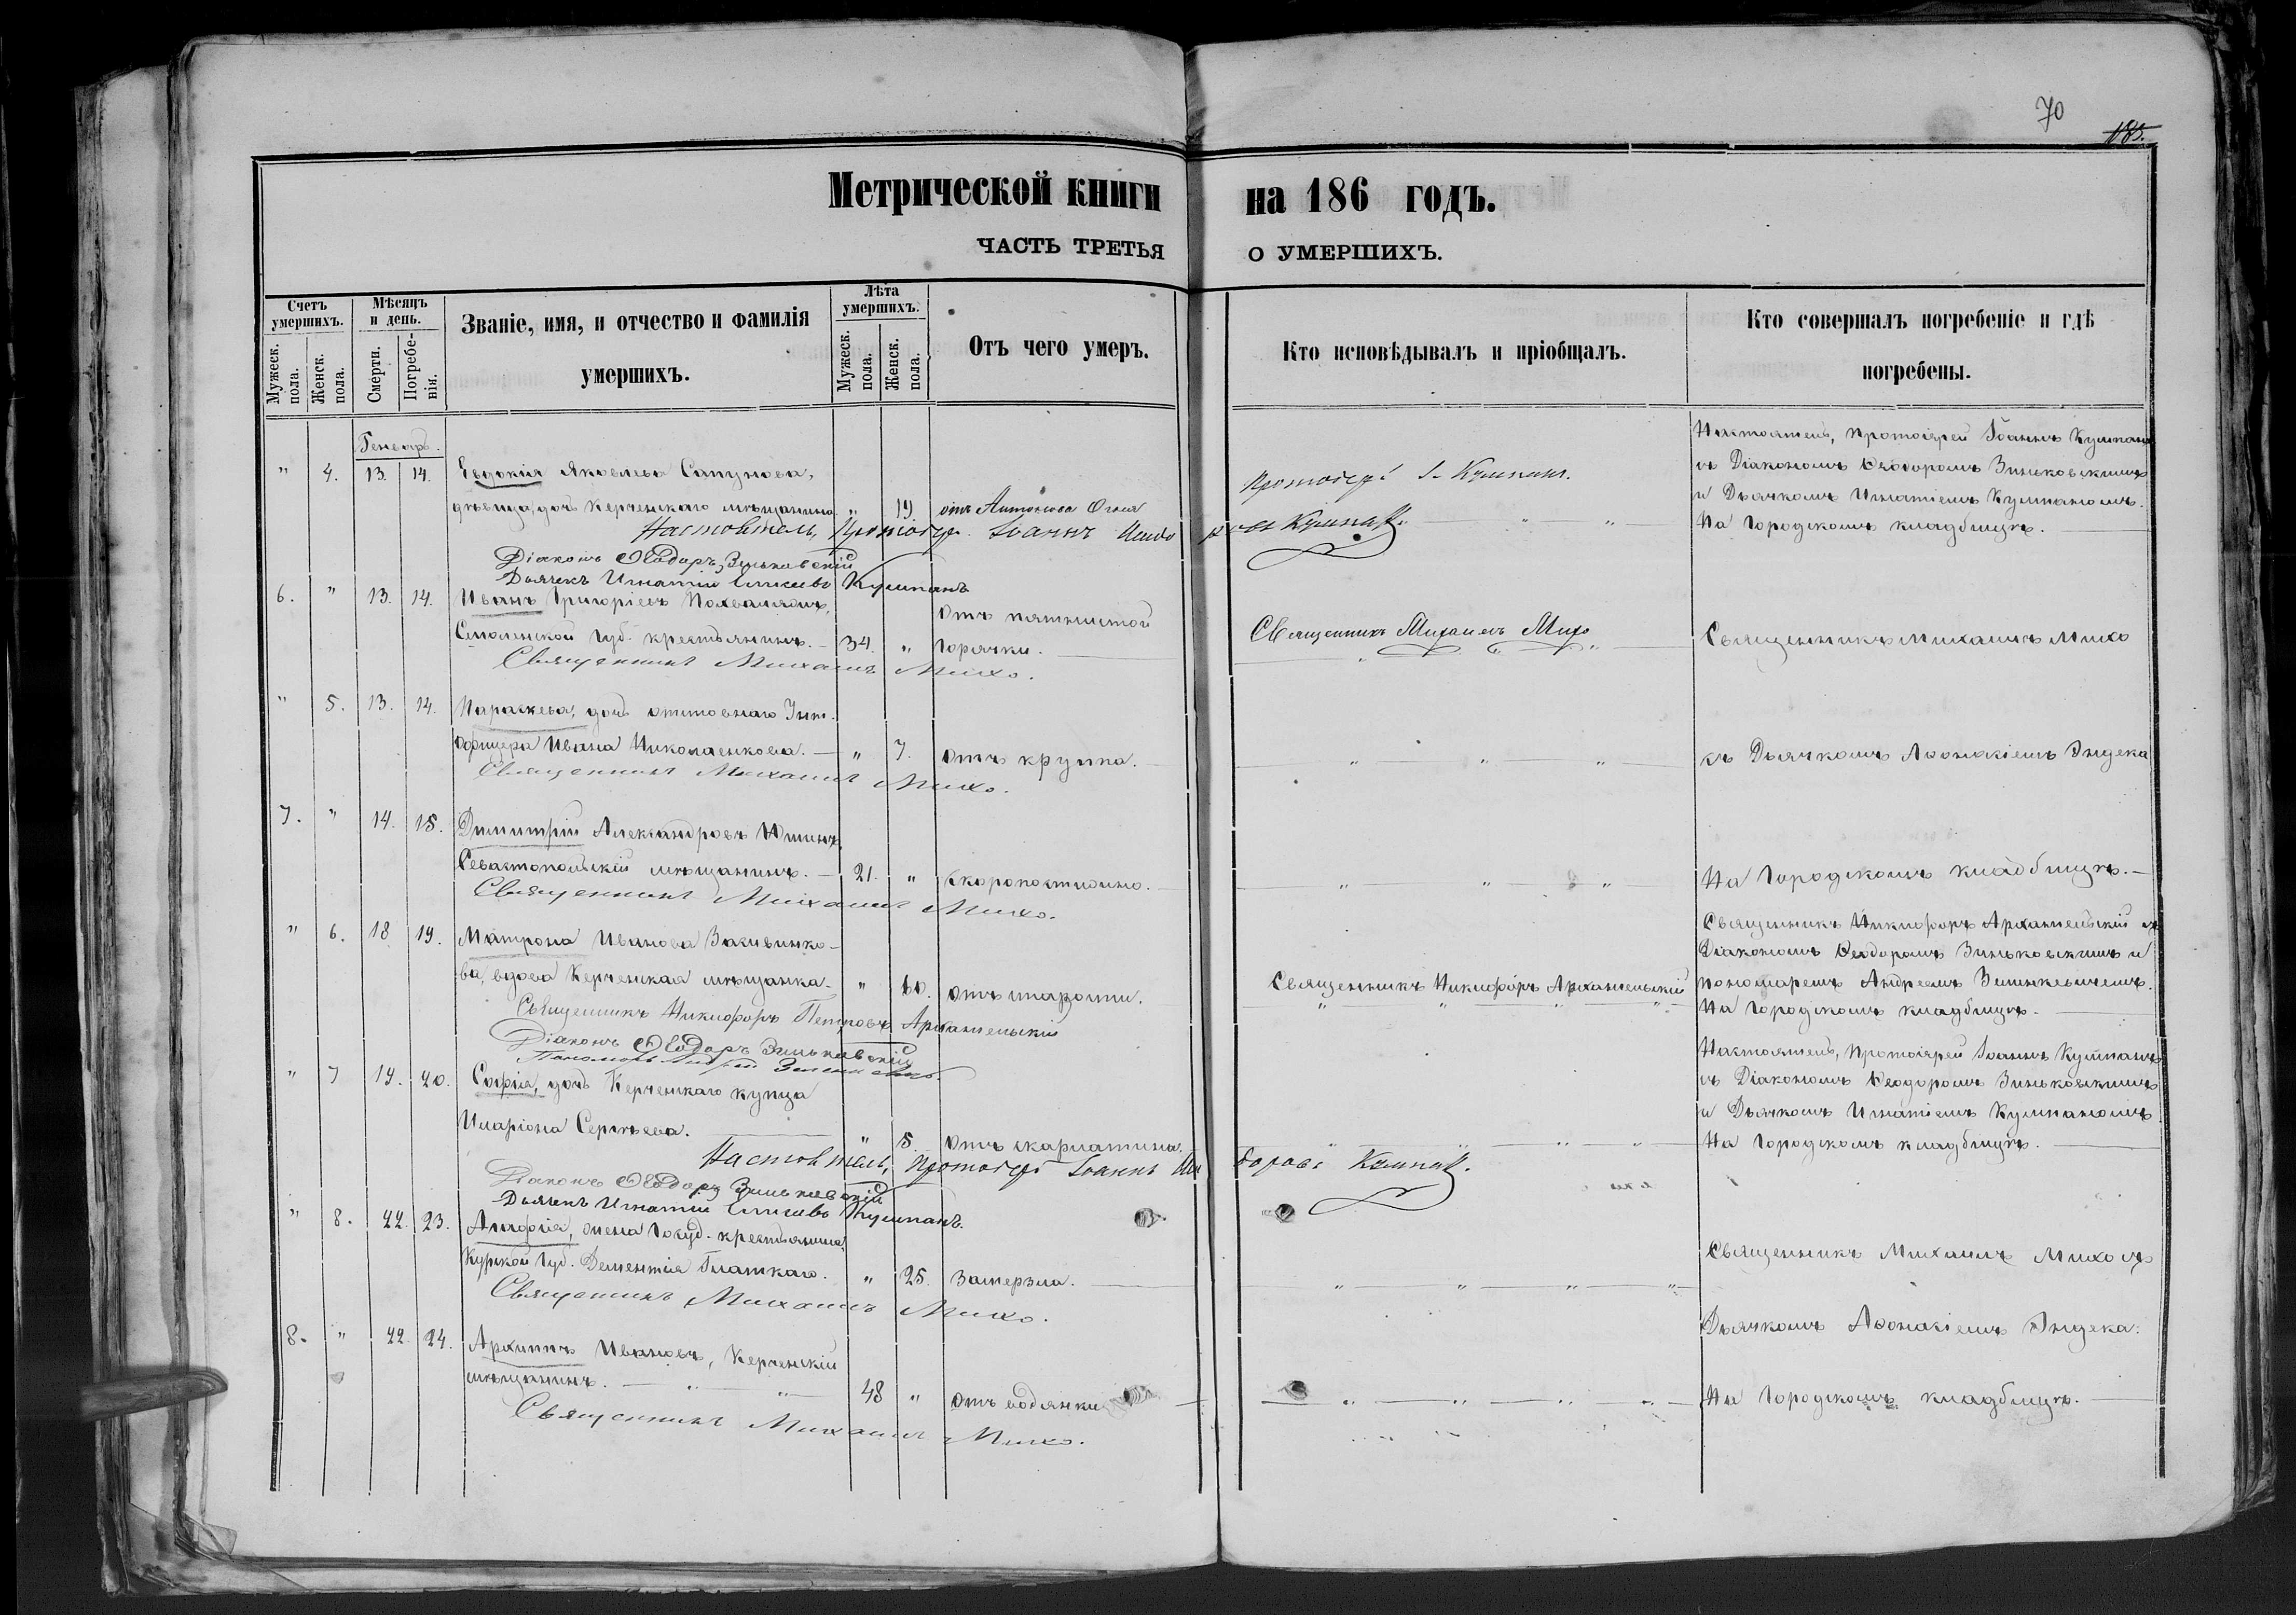 70
183.
Метрической книги на 186 годъ.
ЧАСТЬ ТРЕТЬЯ О УМЕРШИХЪ.
Счетъ умершихъ.
Мужеск. пола.
Женск. пола.
Мѣсяцъ и день.
Смерти.
Погребенія.
Званіе, имя, и отчество и фамилія
умершихъ.
Лѣта умершихъ.
Мужеск. пола.
Женск. пола.
Отъ чего умеръ.
Кто исповѣдывалъ и пріобщалъ.
Кто совершалъ погребеніе и гдѣ
погребены.
Генварь.
" 4. 13. 14. Евдокія Яковлева Сапунова,
дѣвица, дочь Керченскаго мѣщанина " 19 отъ Антонова Огня
Протоіерей І. Кумпанъ.
Настоятель, Протоіерей Іоаннъ Кумпанъ
съ Діакономъ Ѳеодоромъ Зиньковскимъ
и Дьячкомъ Игнатіемъ Кумпаномъ.
На Городскомъ кладбищѣ.
Настоятель, Протоіер. Іоаннъ Кумпанъ.
Діаконъ Ѳеодоръ Зиньковскій
Дьячекъ Игнатій Кумпанъ
6. " 13. 14. Иванъ Григоріевъ
Смоленской Губ. крестьянинъ. 34. " Отъ пятнистой
Горячки.
Священникъ Михаилъ Михо
Священникъ Михаилъ Михо
Священникъ Михаилъ Михо.
" 5. 13. 14. Параскева, дочь отставнаго Унт.
Офицера Ивана Николаенкова. " 7. Отъ крупа.
съ Дьячкомъ Аѳонасіемъ Эндека
Священникъ Михаилъ Михо.
7. " 14. 15. Димитрій Александровъ Юшинъ,
Севастопольскій мѣщанинъ. 21. " Скоропостижно.
На Городскомъ кладбищѣ.
Священникъ Михаилъ Михо.
" 6. 18 19. Матрона Иванова
ва, вдова Керченская мѣщанка. " 60. Отъ старости.
Священникъ Никифоръ Архангельскій
Священникъ Никифоръ Архангельскій съ
Діакономъ Ѳеодоромъ Зиньковскимъ и
пономаремъ Андреемъ Зелинкевичемъ.
На Городскомъ кладбищѣ.
Священникъ Никифоръ Петровъ Архангельскій
Діаконъ Ѳеодоръ Зиньковскій
Пономарь Андрей
" 7 19. 20. Софія, дочь Керченскаго купца
Иларіона Сергѣева. " 5. Отъ скарлатина.
Настоятель, Протоіерей Іоаннъ Кумпанъ
съ Діакономъ Ѳеодоромъ Зиньковскимъ
и Дьячкомъ Игнатіемъ Кумпаномъ.
На Городскомъ кладбищѣ.
Настоятель, Протоіерей Іоаннъ Кумпанъ.
Діаконъ Ѳеодоръ Зиньковскій
Дьячекъ Игнатій Кумпанъ.
" 8. 22. 23. жена Госуд. крестьянина,
Курской Губ. Дементія Гладкаго. " 25. Замерзла.
Священникъ Михаилъ Михо съ
Священникъ Михаилъ Михо.
Дьячкомъ Аѳонасіемъ Эндека.
8. " 22. 24. Архиппъ Ивановъ, Керченскій
мѣщанинъ. 48 " Отъ водянки
На Городскомъ кладбищѣ.
Священникъ Михаилъ Михо.